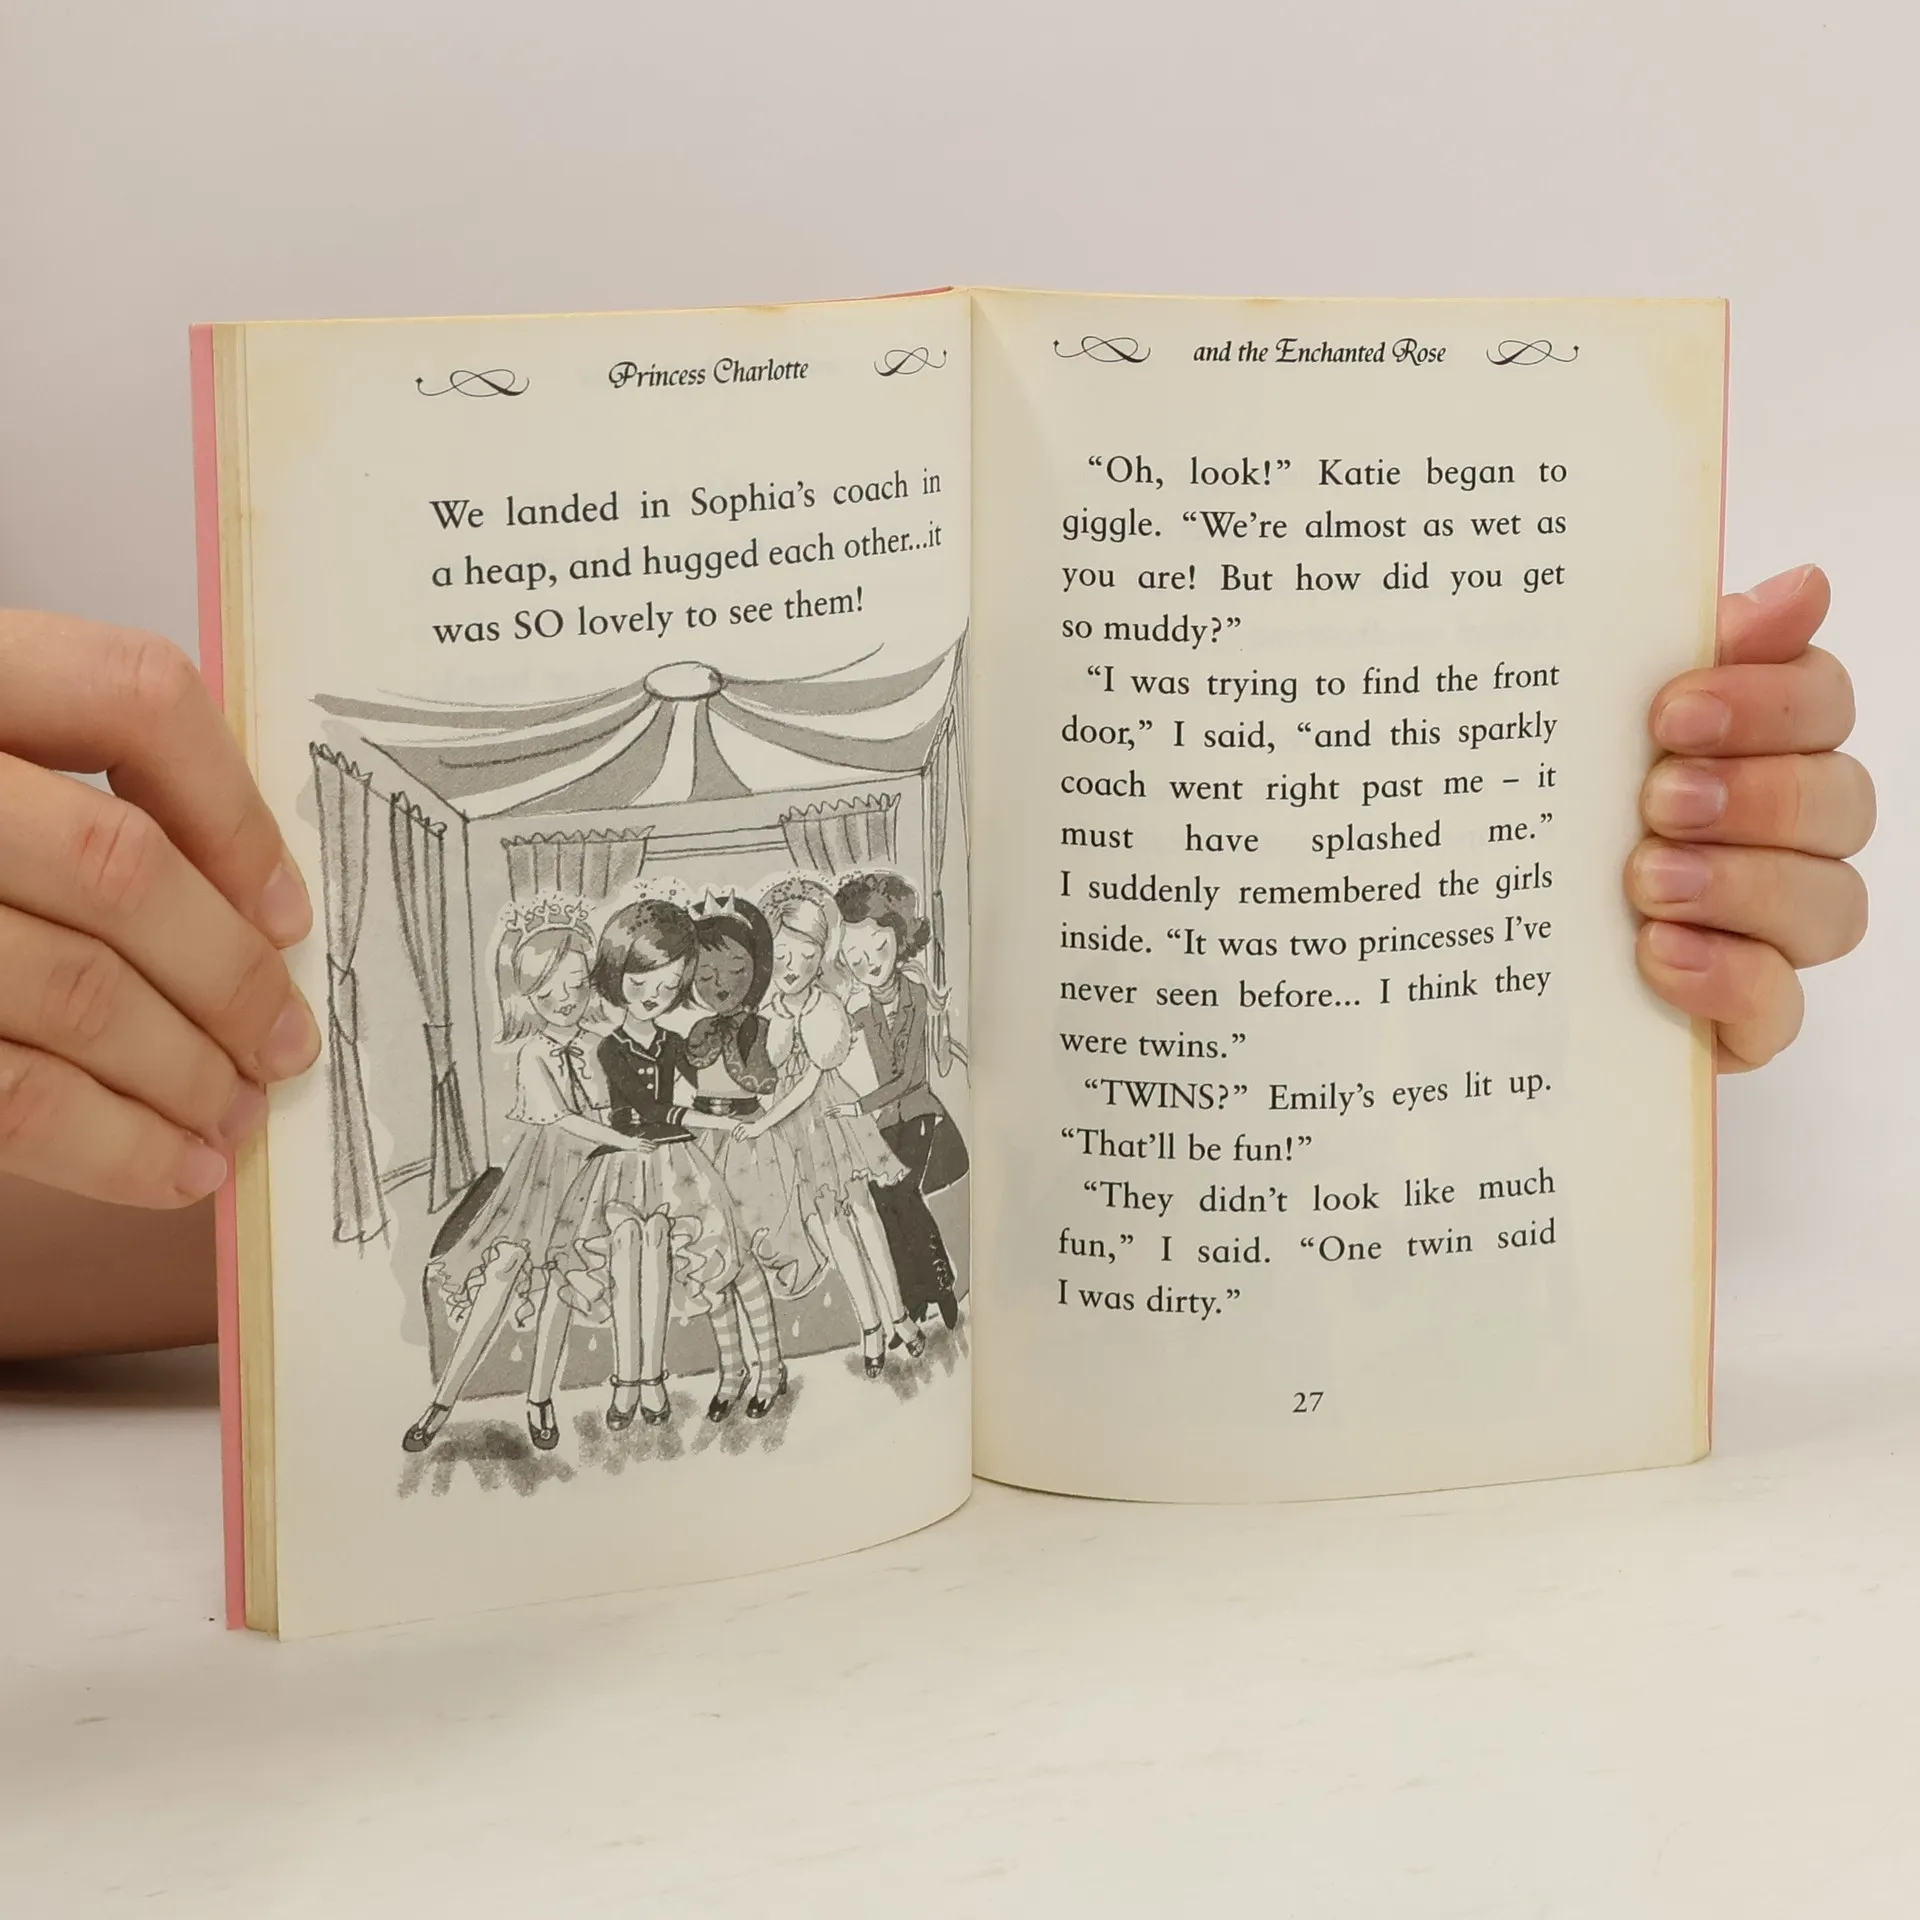 Princess Charlotte
We landed in Sophia's coach in
a heap, and hugged each other...it
was SO lovely to see them!
and the Enchanted Rose
“Oh, look!” Katie began to
giggle. “We’re almost as wet as
you are! But how did you get
so muddy?”
“I was trying to find the front
door,” I said, “and this sparkly
coach went right past me – it
must have splashed me.”
I suddenly remembered the girls
inside. “It was two princesses I’ve
never seen before... I think they
were twins.”
“TWINS?” Emily’s eyes lit up.
“That’ll be fun!”
“They didn’t look like much
fun,” I said. “One twin said
I was dirty.”
27